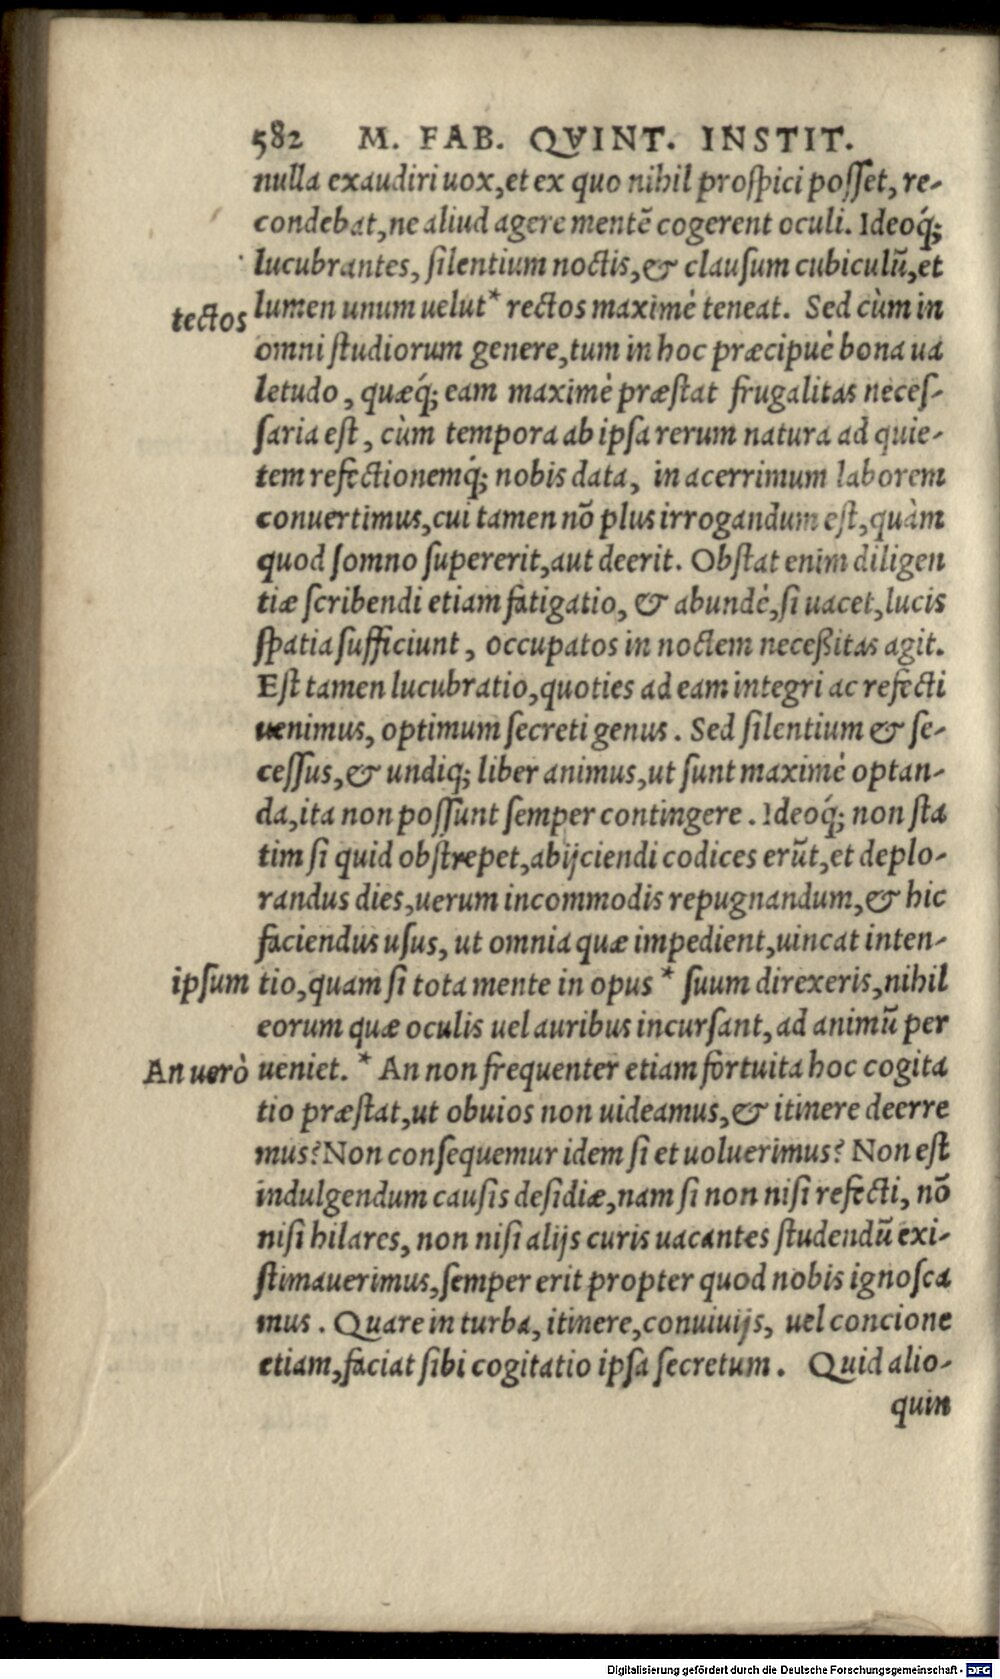 582 M. FAB. QVINT. INSTIT.
nulla exaudiri uox, et ex quo nihil proſpici poſſet, re-
condebat, ne aliud agere mentē cogerent oculi. Ideoq́;
lucubrantes, ſilentium noctis, & clauſum cubiculū, et
tectos
lumen unum uelut* rectos maximè teneat. Sed cùm in
omni ſtudiorum genere, tum in hoc præcipuè bona ua
letudo, quæq́; eam maximè præſtat frugalitas neceſ-
ſaria eſt, cùm tempora ab ipſa rerum natura ad quie-
tem refectionemq́; nobis data, in acerrimum laborem
conuertimus, cui tamen nō plus irrogandum eſt, quàm
quod ſomno ſupererit, aut deerit. Obſtat enim diligen
tiæ ſcribendi etiam fatigatio, & abundè, ſi uacet, lucis
ſpatia ſufficiunt, occupatos in noctem neceßitas agit.
Eſt tamen lucubratio, quoties ad eam integri ac refecti
uenimus, optimum ſecreti genus. Sed ſilentium & ſe-
ceſſus, & undiq; liber animus, ut ſunt maximè optan-
da, ita non poſſunt ſemper contingere. Ideoq́; non ſta
tim ſi quid obſtrepet, abijciendi codices erūt, et deplo-
randus dies, uerum incommodis repugnandum, & hic
faciendus uſus, ut omnia quæ impedient, uincat inten-
ipſum
tio, quam ſi tota mente in opus * ſuum direxeris, nihil
eorum quæ oculis uel auribus incurſant, ad animū per
An uerò
ueniet. * An non frequenter etiam fortuita hoc cogita
tio præſtat, ut obuios non uideamus, & itinere deerre
mus? Non conſequemur idem ſi et uoluerimus? Non eſt
indulgendum cauſis deſidiæ, nam ſi non niſi refecti, nō
niſi hilares, non niſi alijs curis uacantes ſtudendū exi-
ſtimauerimus, ſemper erit propter quod nobis ignoſca
mus. Quare in turba, itinere, conuiuijs, uel concione
etiam, faciat ſibi cogitatio ipſa ſecretum. Quid alio-
quin
Digitalisierung gefördert durch die Deutsche Forschungsgemeinschaft - DFG